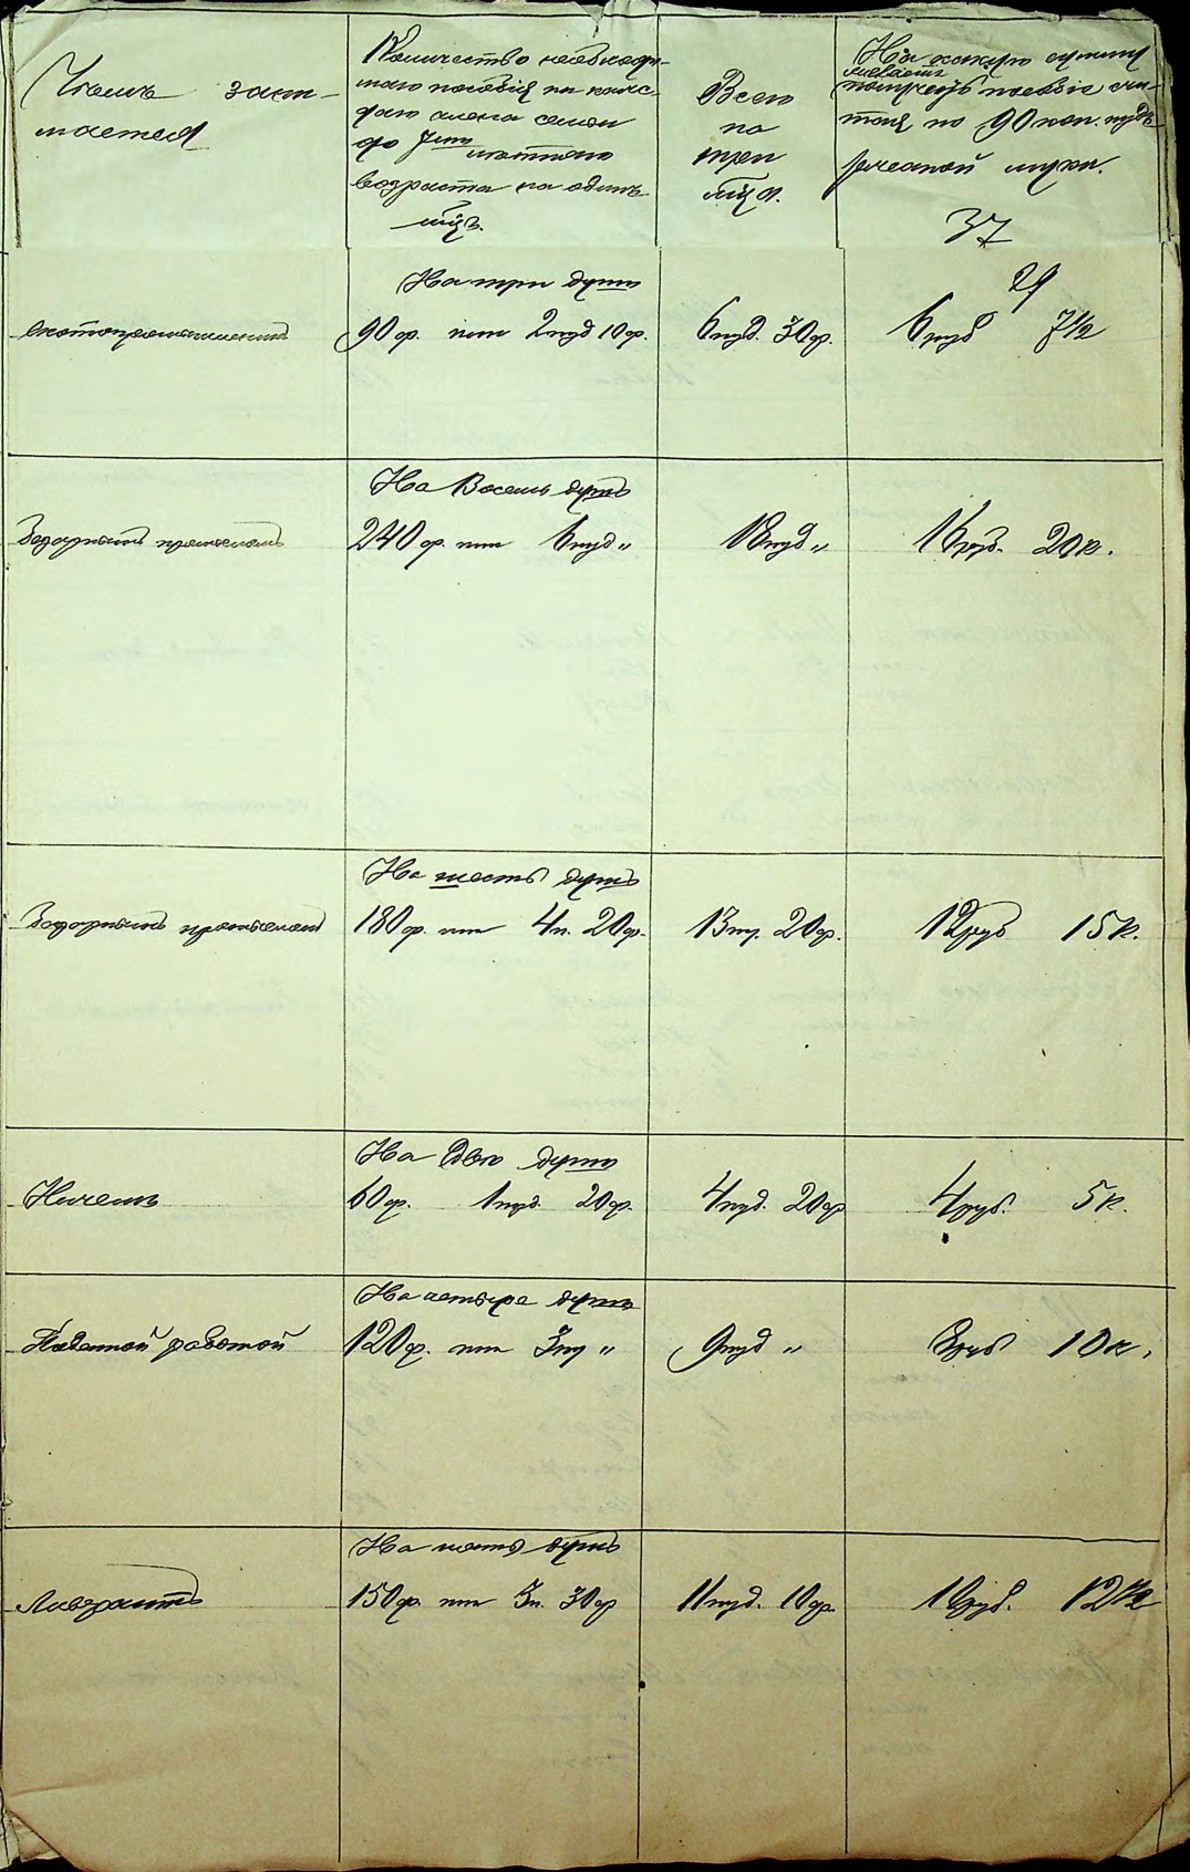 Чѣмъ зани-
мается
Количество необходи-
маго пособія на каж-
даго члена семьи
до 7ми лѣтняго
возраста на одинъ
мѣц.
Всего
на
три
мѣца.
На какую сумму
потребуется пособіе счи-
тая по 90 коп. пудъ
ржаной муки.
37
29
На три души
скотопромышлен.
90 ф. или 2 пуд 10 ф.
6 пуд. 30 ф.
6 руб 7½
На Восемь душъ
Заднимъ промысломъ
240 ф. или 6 пуд „
18 пуд „
16 руб. 20 к.
На шесть душъ
промысломъ
180 ф. или 4 п. 20 ф.
13 пу. 20 ф.
12 руб 15 к.
На Двѣ души
Ничемъ
60 ф. 1 пуд. 20 ф.
4 пуд. 20 ф
4 руб. 5 к.
На четыре души
Поденной работой
120 ф. или 3 пу „
9 пуд „
8 руб 10 к.
На пять душъ
150 ф. или 3 п. 30 ф
11 пуд. 10 ф.
10 руб. 12½